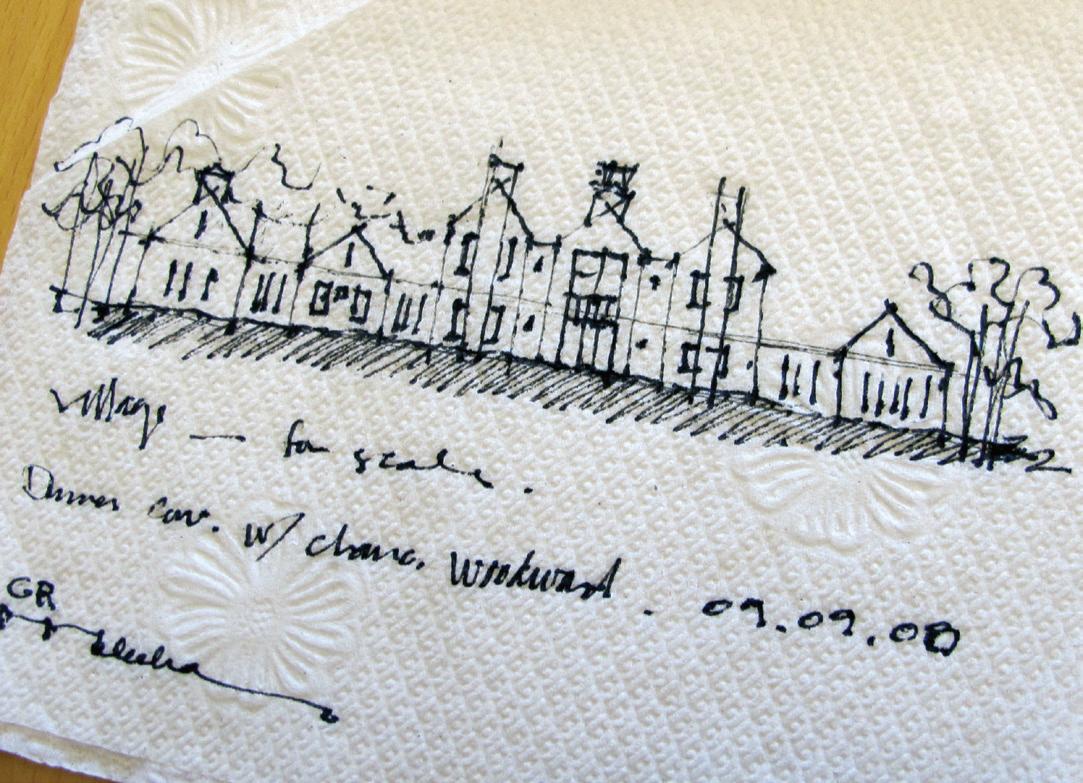 village — for scale.
Dinner conv. w/ chanc. Woodward. 09.09.08
GR